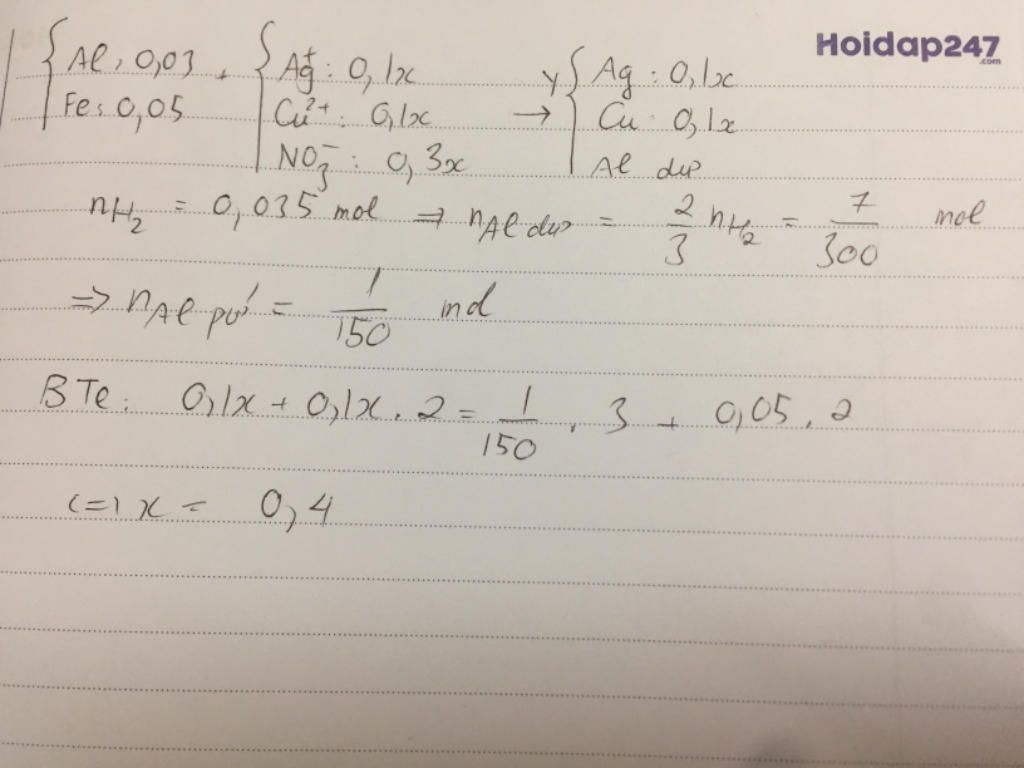 Hoidap247
.com
{ Al : 0,03 + { Ag⁺ : 0,1x → Y { Ag : 0,1x
Fe : 0,05 Cu²⁺ : 0,1x Cu : 0,1x
NO₃⁻ : 0,3x Al dư
nH₂ = 0,035 mol ⇒ nAl dư = 2/3 nH₂ = 7/300 mol
⇒ nAl pứ = 1/150 mol
BTe : 0,1x + 0,1x . 2 = 1/150 . 3 + 0,05 . 2
(=) x = 0,4